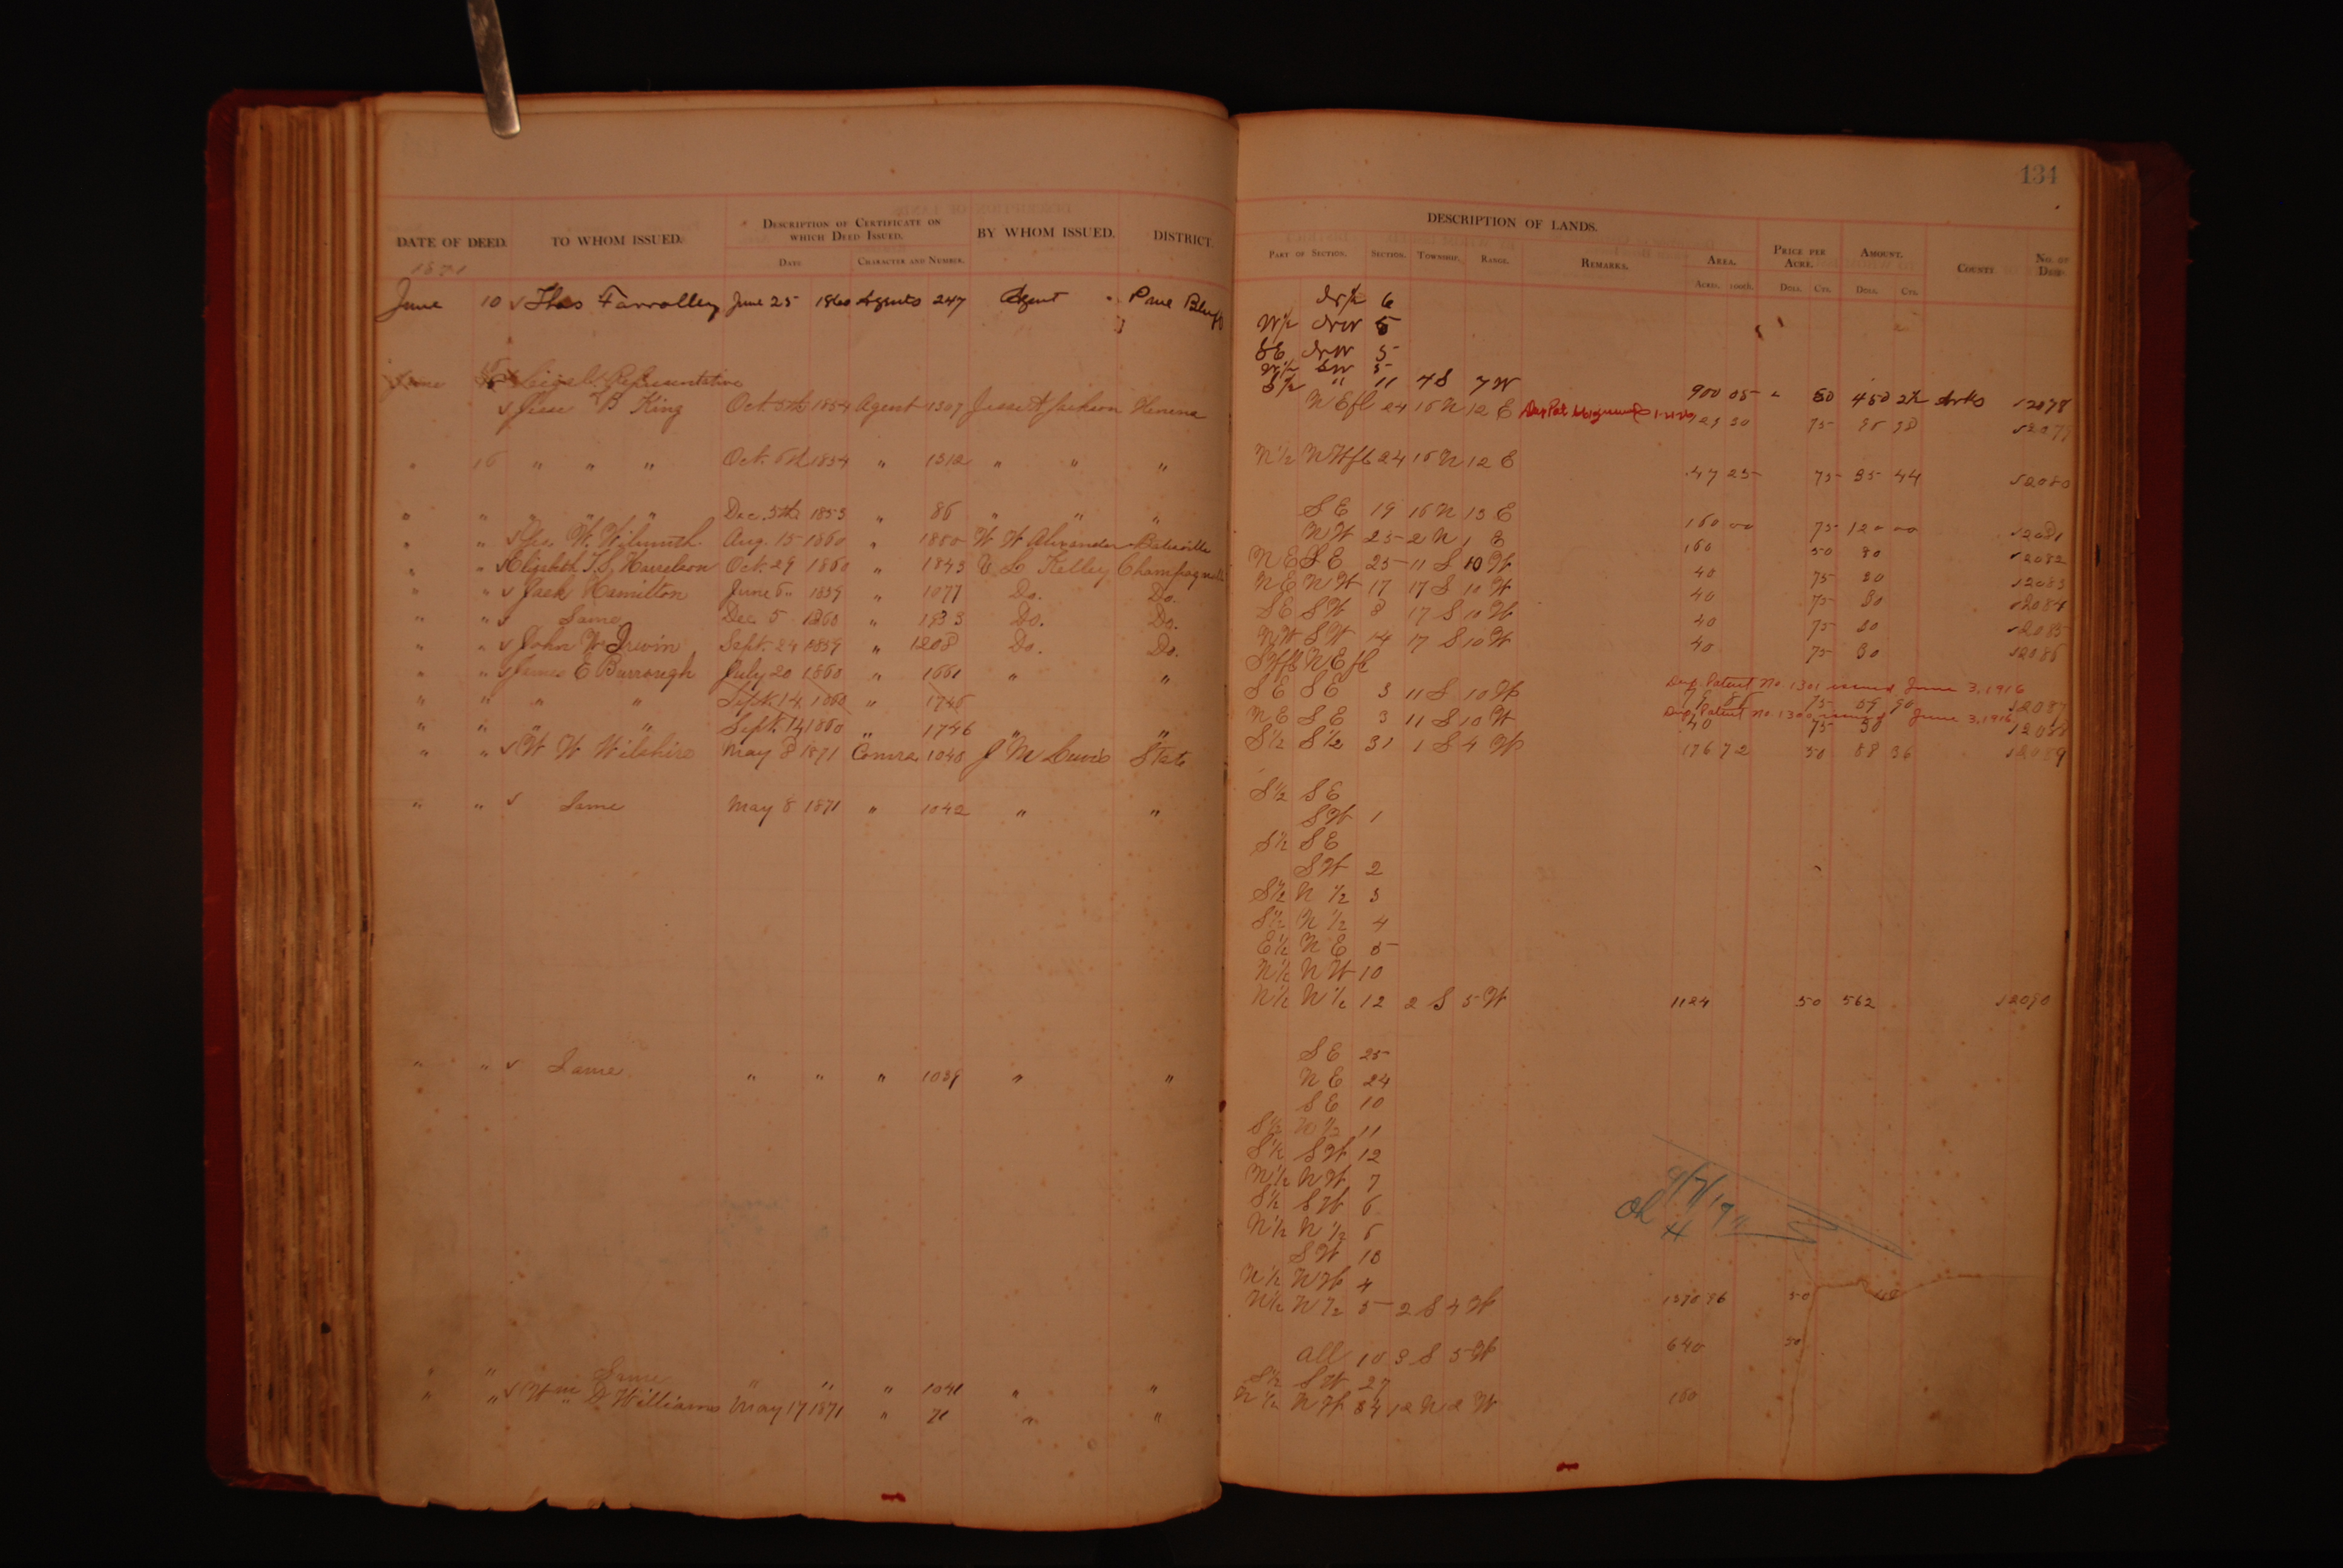 134
DESCRIPTION OF LANDS.
DATE OF DEED. TO WHOM ISSUED. DESCRIPTION OF CERTIFICATE ON WHICH DEED ISSUED. BY WHOM ISSUED. DISTRICT.
DATE. CHARACTER AND NUMBER.
PART OF SECTION. SECTION. TOWNSHIP. RANGE. REMARKS. AREA. PRICE PER ACRE. AMOUNT. COUNTY. NO. OF DEED.
ACRES. 100CH. DOLL. CTS. DOLL. CTS.
1871
June 10 Thos Farrolley June 25 1860 Agents 247 Agent Pine Bluff
6
W½ NW 5
SE NW 5
W½ SW 5
S½ " 11 4 S 7 W 900 05 50 450 2½ Arks 12078
June 15 Legal Representative
Jesse B King Oct. 5th 1854 Agent 1307 Jesse A Jackson Helena NE fl 24 16 N 12 E 75 12079
" 15 " " " Oct. 6th 1854 " 1312 " " " N½ NW fl 24 16 N 12 E 47 25 75 35 44 12080
" " " " " Dec. 5th 1853 " 86 " " " SE 19 16 N 13 E 160 00 75 120 00 12081
" " W. Wilmuth Aug. 15 1860 " 1880 W W Alexander Batesville NW 25 2 N 1 E 160 50 80 12082
" " Elizabeth T. S. Harrelson Oct. 29 1860 " 1843 Kelley Champagnolle NE SE 25 11 S 10 W 40 75 30 12083
" " Jack Hamilton June 6 1859 " 1077 Do. Do. NE NW 17 17 S 10 W 40 75 30 12084
" " Same Dec 5 1860 " 1933 Do. Do. SE SW 8 17 S 10 W 40 75 30 12085
" " John W Irwin Sept. 24 1859 " 1208 Do. Do. NW SW 14 17 S 10 W 40 75 30 12086
" " James E Burrough July 20 1860 " 1661 " " SW fl NE fl
Dup. Patent No. 1301 issued June 3, 1916
" " " " Sept. 14 1860 " 1746 SE SE 3 11 S 10 W 75 59 90 12087
Dup. Patent No. 1300 issued June 3, 1916
" " " " Sept. 14 1860 " 1746 " " NE SE 3 11 S 10 W 40 75 30 12088
" " W W Wilshire May 8 1871 Comrs. 1048 J M Lewis State S½ S½ 31 1 S 4 W 176 72 50 88 36 12089
" " Same May 8 1871 " 1042 " " S½ SE
SW 1
S½ SE
SW 2
S½ N½ 3
S½ N½ 4
E½ NE 5
N½ NW 10
N½ N½ 12 2 S 5 W 1124 50 562 12090
" " Same " " " 1039 " " SE 25
NE 24
SE 10
S½ 11
S½ SW 12
N½ NW 7
S½ SW 6
N½ N½ 6
SW 18
N½ NW 4
N½ N½ 5 2 S 4 W 50
" " Same " " " 1041 " " All 10 3 S 5 W 640 50
" " Wm D Williams May 17 1871 " 71 " " S½ SW 27
N½ NW 34 12 N 2 W 160
OK 9/7/17
H